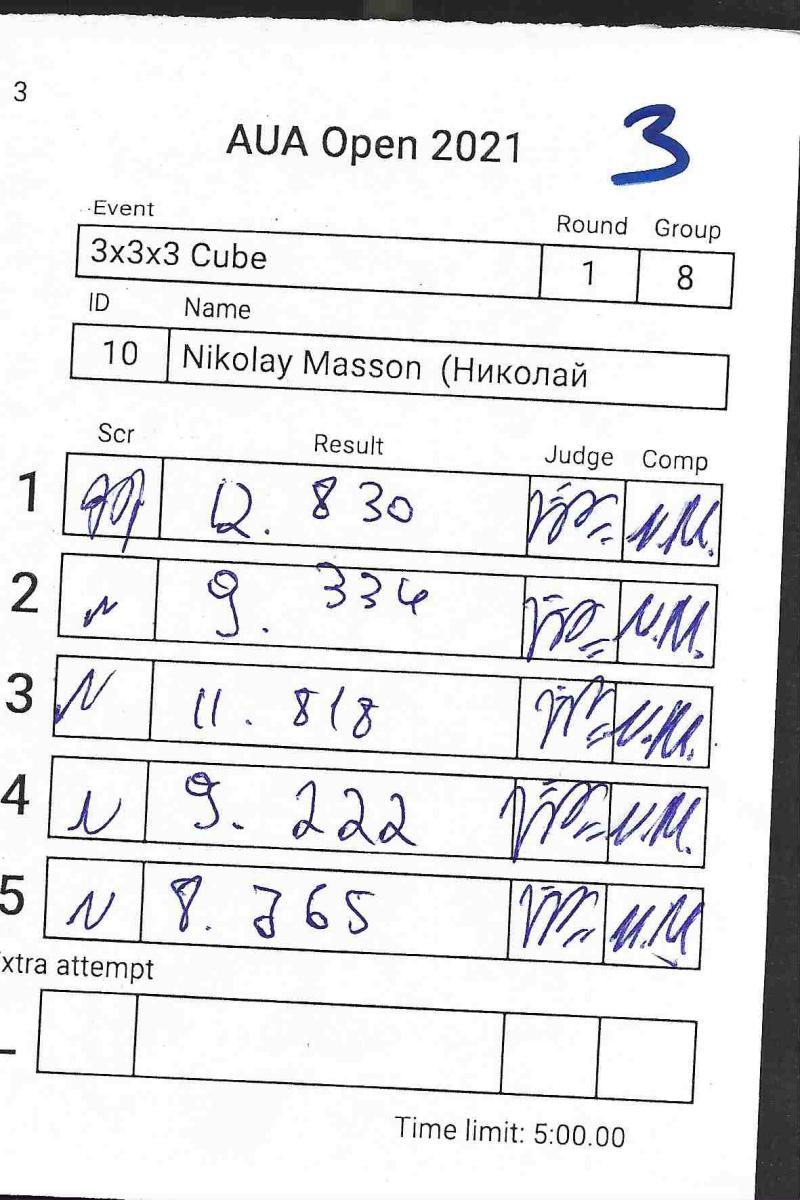 3
AUA Open 2021
3
Event Round Group
3x3x3 Cube 1 8
ID Name
10 Nikolay Masson (Николай
Scr Result Judge Comp
1 12. 830 N.M.
2 9. 334 N.M.
3 11. 818 N.M.
4 9. 222 N.M.
5 8. 365 N.M
xtra attempt
Time limit: 5:00.00